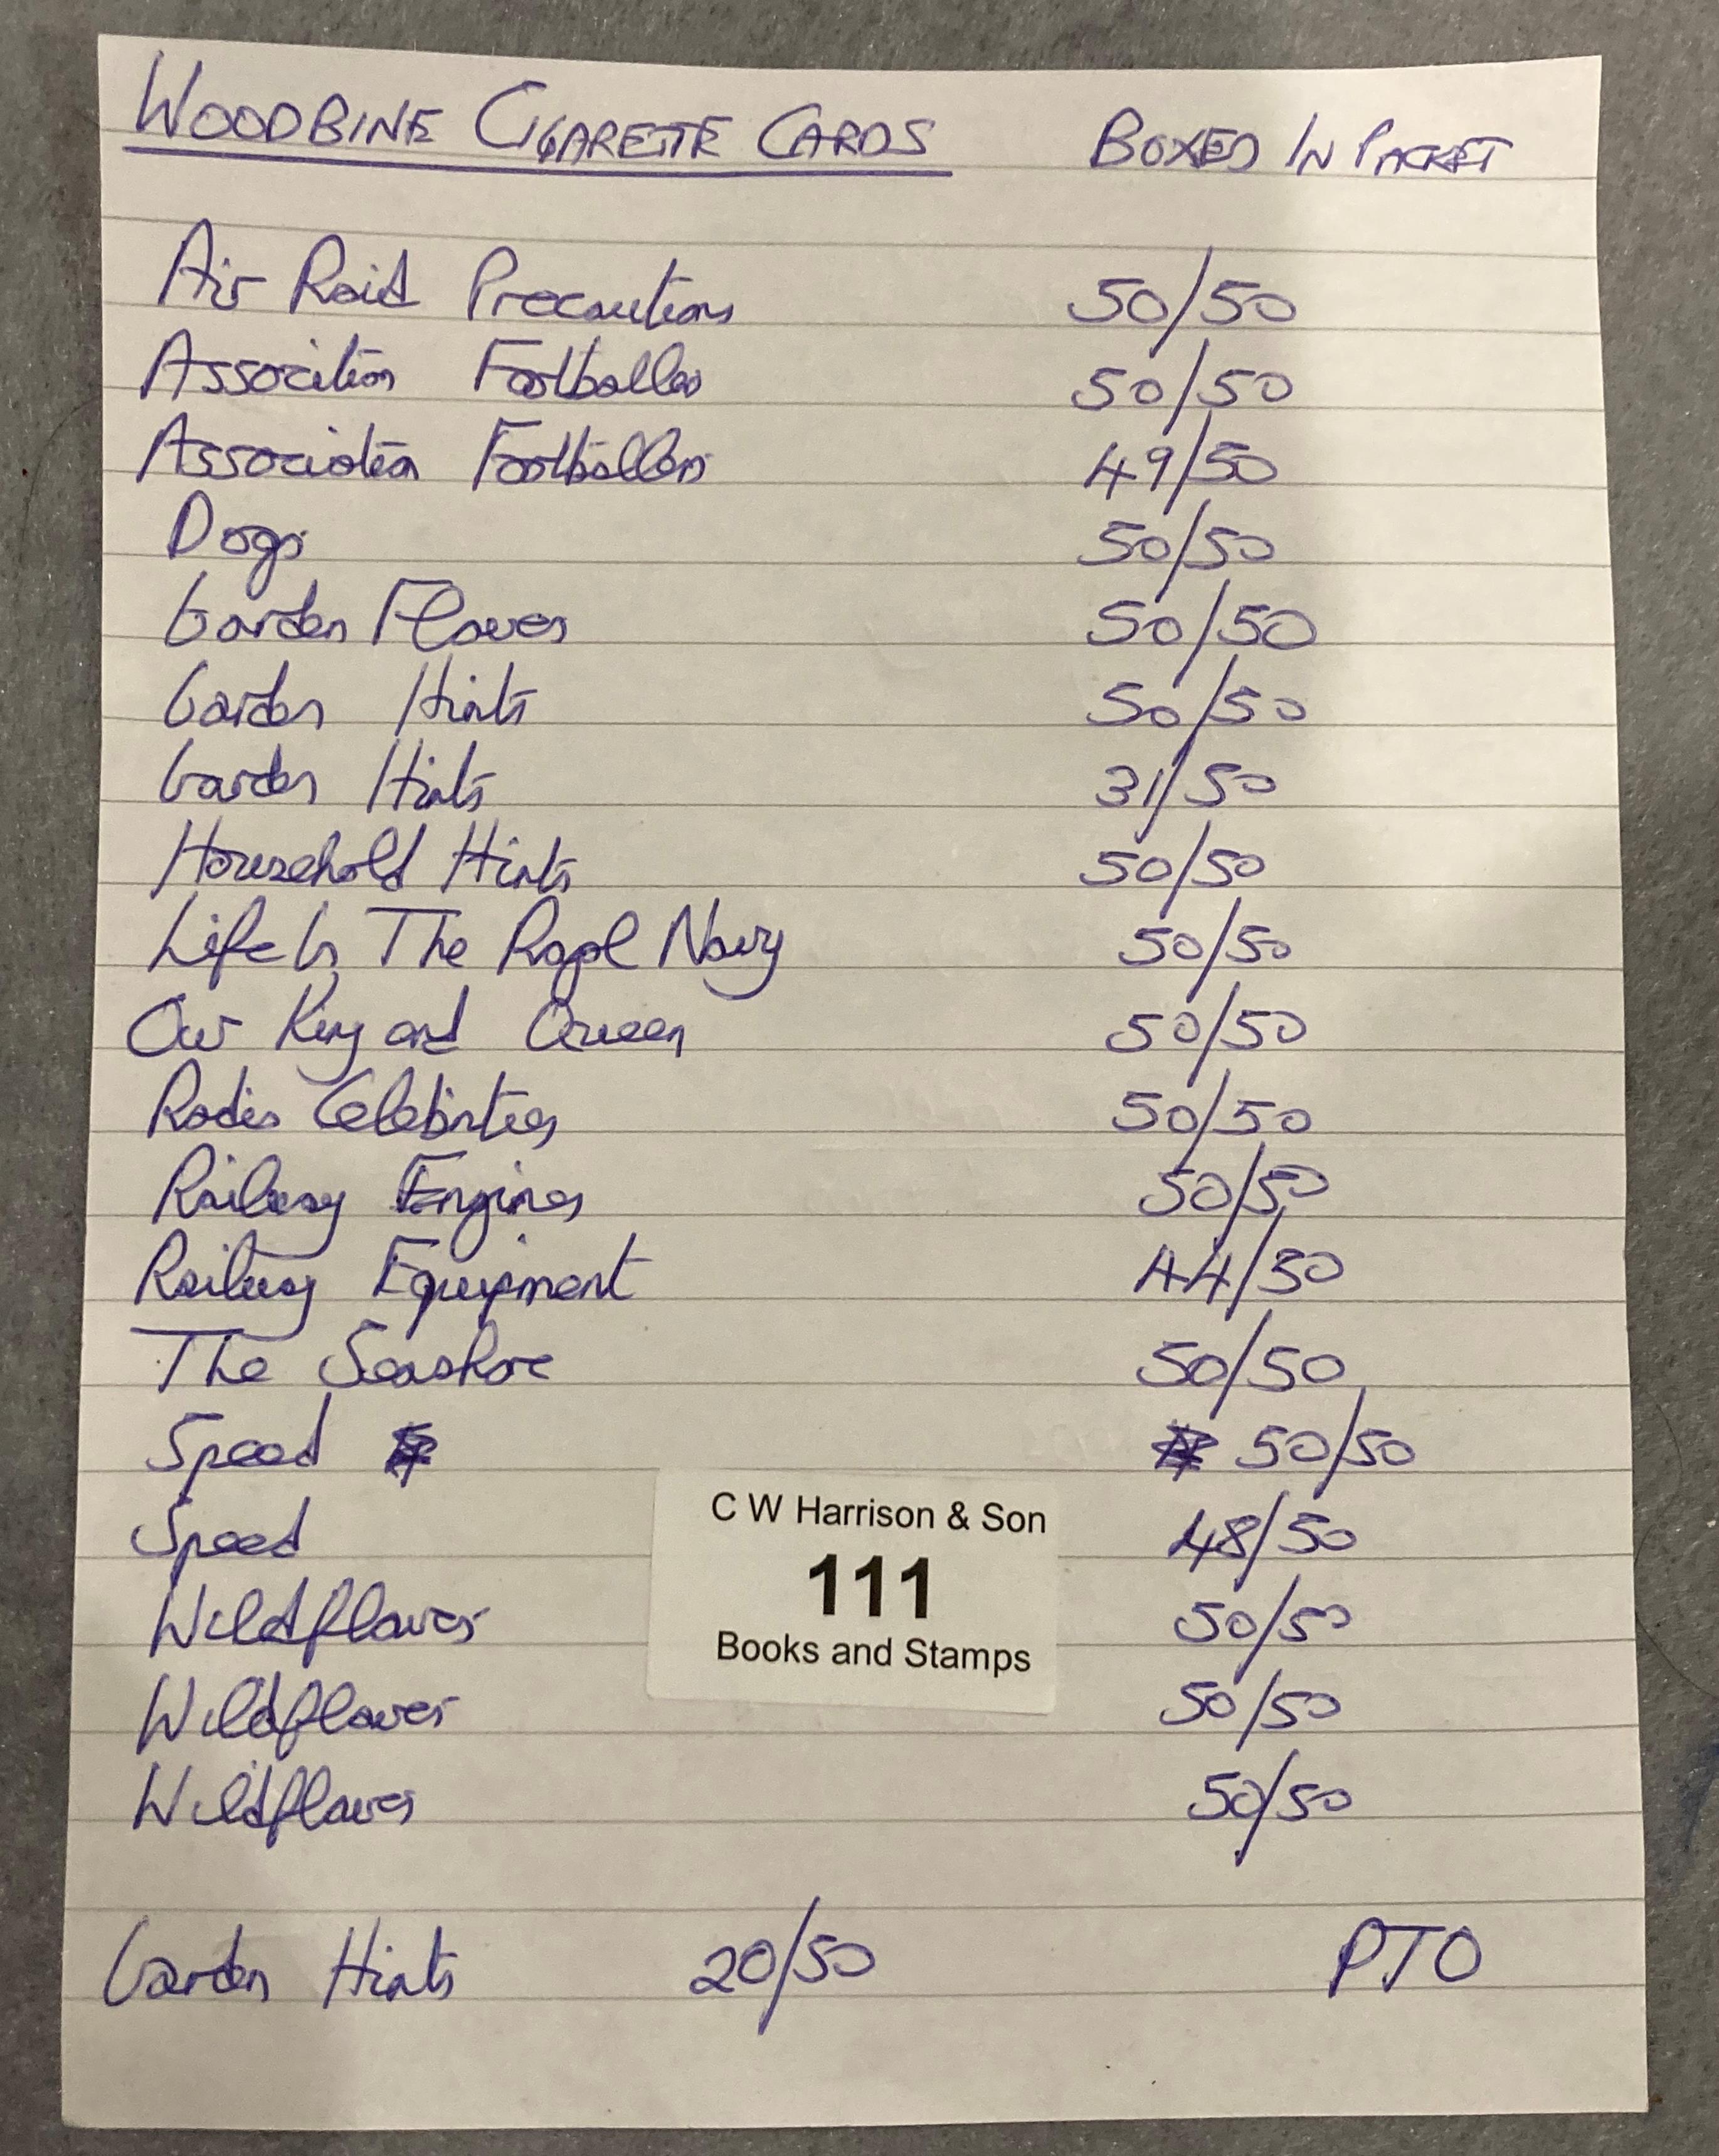 WOODBINE CIGARETTE CARDS BOXED IN PACKET
Air Raid Precautions 50/50
Association Footballers 50/50
Association Footballers 49/50
Dogs 50/50
Garden Flowers 50/50
Garden Hints 50/50
Garden Hints 31/50
Household Hints 50/50
Life In The Royal Navy 50/50
Our King and Queen 50/50
Radio Celebrities 50/50
Railway Engines 50/50
Railway Equipment 44/50
The Seashore 50/50
Speed 50/50
Speed 48/50
Wildflowers 50/50
Wildflowers 50/50
Wildflowers 50/50
C W Harrison & Son
111
Books and Stamps
Garden Hints 20/50 PTO